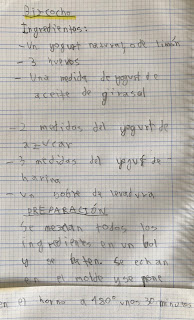 Bizcocho
Ingredientes:
- Un yogurt natural, o de limón
- 3 huevos
- Una medida de yogurt de
aceite de girasol
- 2 medidas del yogurt de
azucar
- 3 medidas del yogurt de
harina
- un sobre de levadura
PREPARACIÓN
Se mezclan todos los
ingredientes en un bol
y se baten. Se echan
en el molde y se pone
en el horno a 180° unos 30 minutos